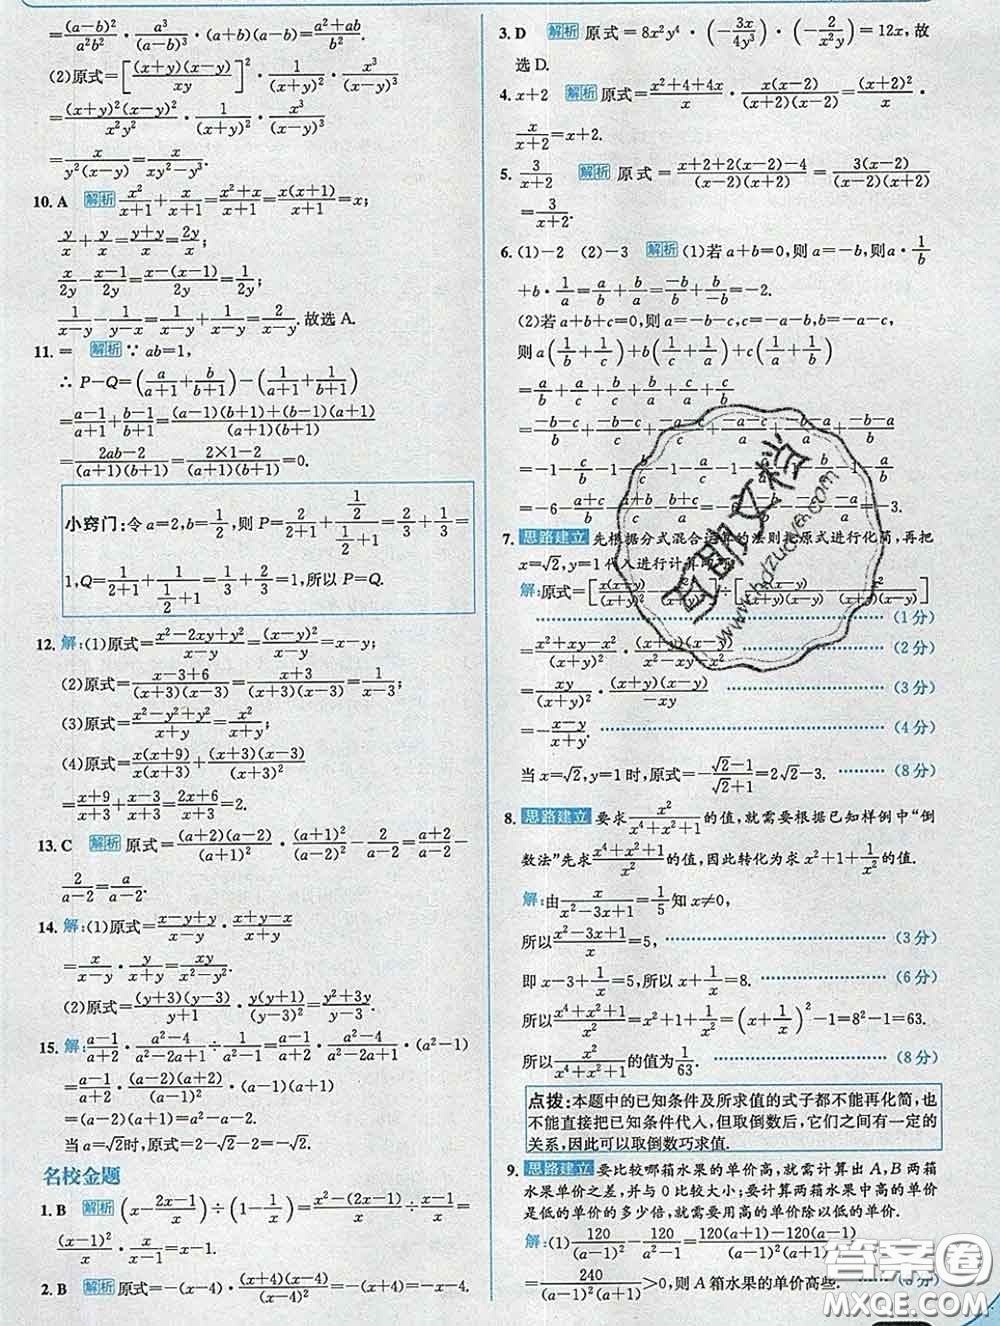 =\frac{(a-b)^2}{a^2b^2}·\frac{a^3}{(a-b)^3}·(a+b)(a-b)=\frac{a^2+ab}{b^2}.
(2)原式=[\frac{(x+y)(x-y)}{xy}]^2·\frac{1}{(x+y)^2}·\frac{x^3}{(x-y)^3}
=\frac{(x+y)^2(x-y)^2}{x^2y^2}·\frac{1}{(x+y)^2}·\frac{x^3}{(x-y)^3}
=\frac{x}{y^2(x-y)}=\frac{x}{xy^2-y^3}.
10. A 解析 \frac{x^2}{x+1}+\frac{x}{x+1}=\frac{x^2+x}{x+1}=\frac{x(x+1)}{x+1}=x;
\frac{y}{x}+\frac{y}{x}=\frac{y+y}{x}=\frac{2y}{x};
\frac{x}{2y}-\frac{x-1}{2y}=\frac{x-(x-1)}{2y}=\frac{1}{2y};
\frac{1}{x-y}-\frac{1}{y-x}=\frac{1}{x-y}+\frac{1}{x-y}=\frac{2}{x-y}.故选 A.
11. = 解析 ∵ab=1,
∴P-Q=(\frac{a}{a+1}+\frac{b}{b+1})-(\frac{1}{a+1}+\frac{1}{b+1})
=\frac{a-1}{a+1}+\frac{b-1}{b+1}=\frac{(a-1)(b+1)+(b-1)(a+1)}{(a+1)(b+1)}
=\frac{2ab-2}{(a+1)(b+1)}=\frac{2×1-2}{(a+1)(b+1)}=0.
小窍门:令a=2,b=\frac{1}{2},则P=\frac{2}{2+1}+\frac{\frac{1}{2}}{\frac{1}{2}+1}=\frac{2}{3}+\frac{1}{3}=
1,Q=\frac{1}{2+1}+\frac{1}{\frac{1}{2}+1}=\frac{1}{3}+\frac{2}{3}=1,所以P=Q.
12. 解:(1)原式=\frac{x^2-2xy+y^2}{x-y}=\frac{(x-y)^2}{x-y}=x-y;
(2)原式=\frac{x-3+6}{(x+3)(x-3)}=\frac{x+3}{(x+3)(x-3)}=\frac{1}{x-3};
(3)原式=\frac{x^2-y^2+y^2}{x+y}=\frac{x^2}{x+y};
(4)原式=\frac{x(x+9)}{x(x+3)}+\frac{(x+3)(x-3)}{(x+3)^2}
=\frac{x+9}{x+3}+\frac{x-3}{x+3}=\frac{2x+6}{x+3}=2.
13. C 解析 原式=\frac{(a+2)(a-2)}{(a+1)^2}·\frac{(a+1)^2}{(a-2)^2}-\frac{2}{a-2}=\frac{a+2}{a-2}-
\frac{2}{a-2}=\frac{a}{a-2}.
14. 解:(1)原式=\frac{x-y+y}{x-y}·\frac{x+y-x}{x+y}
=\frac{x}{x-y}·\frac{y}{x+y}=\frac{xy}{x^2-y^2}.
(2)原式=\frac{(y+3)(y-3)}{y+1}·\frac{y(y+1)}{(y-3)^2}=\frac{y^2+3y}{y-3}.
15. 解:\frac{a-1}{a+2}·\frac{a^2-4}{a^2-2a+1}÷\frac{1}{a^2-1}=\frac{a-1}{a+2}·\frac{a^2-4}{a^2-2a+1}·(a^2-1)
=\frac{a-1}{a+2}·\frac{(a-2)(a+2)}{(a-1)^2}·(a-1)(a+1)
=(a-2)(a+1)=a^2-a-2.
当a=√2时,原式=2-√2-2=-√2.
名校金题
1. B 解析 (x-\frac{2x-1}{x})÷(1-\frac{1}{x})=\frac{x^2-(2x-1)}{x}÷\frac{x-1}{x}=
\frac{(x-1)^2}{x}·\frac{x}{x-1}=x-1.
2. B 解析 原式=-(x-4)·\frac{(x+4)(x-4)}{(x-4)^2}=-(x+4)=-x-4.
3. D 解析 原式=8x^2y^4·(-\frac{3x}{4y^3})·(-\frac{2}{x^2y})=12x,故
选D.
4. x+2 解析 原式=\frac{x^2+4+4x}{x}·\frac{x(x-2)}{(x+2)(x-2)}=\frac{(x+2)^2}{x}·
\frac{x}{x+2}=x+2.
5. \frac{3}{x+2} 解析 原式=\frac{x+2+2(x-2)-4}{(x-2)(x+2)}=\frac{3(x-2)}{(x-2)(x+2)}
=\frac{3}{x+2}.
6. (1)-2 (2)-3 解析 (1)若a+b=0,则a=-b,则a·\frac{1}{b}
+b·\frac{1}{a}=\frac{a}{b}+\frac{b}{a}=\frac{-b}{b}+\frac{b}{-b}=-2.
(2)若a+b+c=0,则a=-b-c,b=-a-c,
则a(\frac{1}{b}+\frac{1}{c})+b(\frac{1}{a}+\frac{1}{c})+c(\frac{1}{a}+\frac{1}{b})
=\frac{a}{b}+\frac{a}{c}+\frac{b}{a}+\frac{b}{c}+\frac{c}{a}+\frac{c}{b}
=\frac{-b-c}{b}+\frac{-b-c}{c}+\frac{-a-c}{a}
=-1-\frac{c}{b}-\frac{b}{c}-1
=-6
7. 思路建立 先根据分式混合运算的法则把原式进行化简,再把
x=√2,y=1代入进行计算即可.
解:原式=[\frac{x(x+y)}{(x+y)^2}
(1分)
=\frac{x^2+xy-x^2}{(x+y)^2}·\frac{(x+y)(x-y)}{x^2-xy-x^2} (2分)
=\frac{xy}{(x+y)^2}·\frac{(x+y)(x-y)}{-xy} (3分)
=-\frac{x-y}{x+y}. (4分)
当x=√2,y=1时,原式=-\frac{√2-1}{√2+1}=2√2-3. (8分)
8. 思路建立 要求\frac{x^2}{x^4+x^2+1}的值,就需要根据已知样例中“倒
数法”先求\frac{x^4+x^2+1}{x^2}的值,因此转化为求x^2+1+\frac{1}{x^2}的值.
解:由\frac{x}{x^2-3x+1}=\frac{1}{5}知x≠0,
所以\frac{x^2-3x+1}{x}=5, (3分)
即x-3+\frac{1}{x}=5,所以x+\frac{1}{x}=8. (6分)
所以\frac{x^4+x^2+1}{x^2}=x^2+1+\frac{1}{x^2}=(x+\frac{1}{x})^2-1=8^2-1=63.
所以\frac{x^2}{x^4+x^2+1}的值为\frac{1}{63}. (8分)
点拨:本题中的已知条件及所求值的式子都不能再化简,也
不能直接把已知条件代入,但取倒数后,它们之间有一定的
关系,因此可以取倒数巧求值.
9. 思路建立 要比较哪箱水果的单价高,就需计算出A,B两箱
水果单价之差,并与0比较大小;要计算两箱水果中高的单价
是低的单价的多少倍,就需要用高的单价除以低的单价.
解:(1)\frac{120}{(a-1)^2}-\frac{120}{a^2-1}=\frac{120(a+1)-120(a-1)}{(a-1)^2(a+1)}
=\frac{240}{(a-1)^2(a+1)}>0,则A箱水果的单价高些.
互助文档
www.hdzuoye.com
答案圈
MXQE.COM